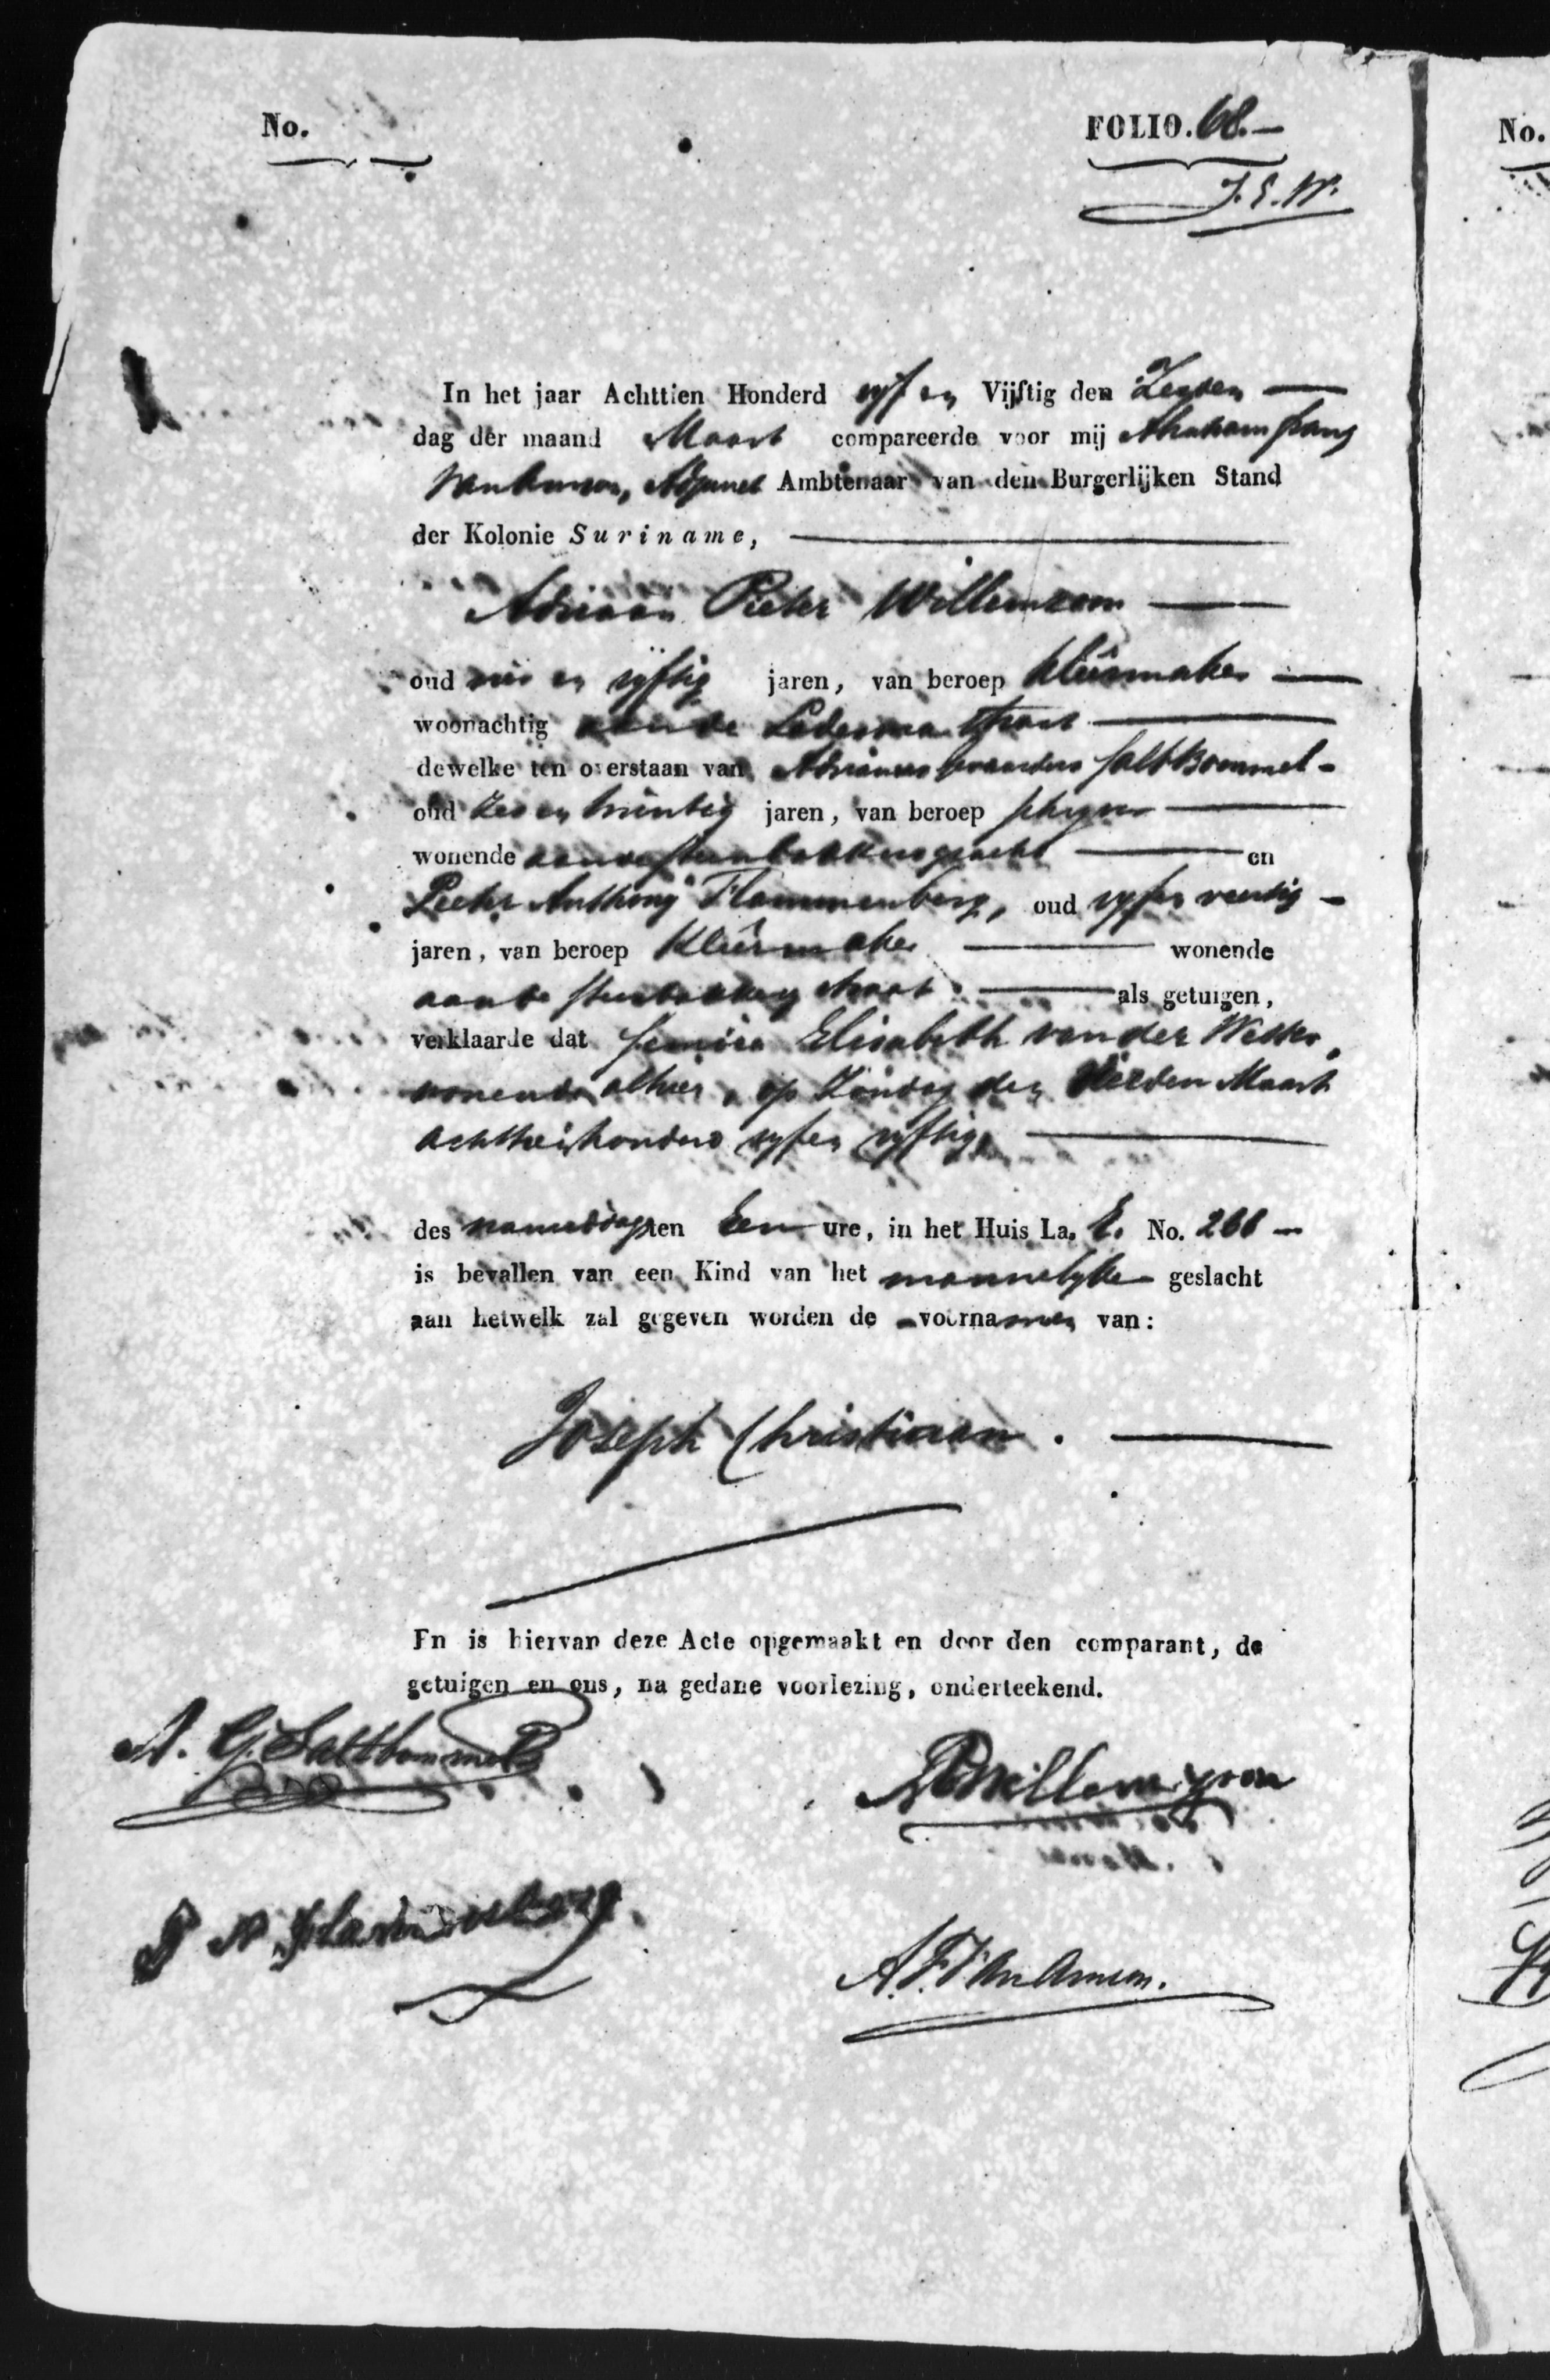 No.
FOLIO. 68.—
J. E. W.
No.
In het jaar Achttien Honderd vyf en Vijftig den Zesden —
dag der maand Maart compareerde voor mij Abraham Frans
Van Amson, Adjunct Ambtenaar van den Burgerlijken Stand
der Kolonie Suriname, —
Adriaan Pieter Willemzoon —
oud en vyftig jaren, van beroep kleêrmaker —
woonachtig aan de Ledesma straat —
dewelke ten overstaan van Adrianus Saltbommel —
oud Zes en twintig jaren, van beroep schryver —
wonende aan de steenbakkersgracht — en
Pieter Anthony Flammenberg, oud vyf en veertig —
jaren, van beroep Kleêrmaker — wonende
aan de steenbakkery straat — als getuigen,
verklaarde dat Elisabeth van der
wonende alhier, op Zondag den Vierden Maart
achttienhonderd vyf en vyftig, —
des namiddags ten Een ure, in het Huis La. E. No. 266 —
is bevallen van een Kind van het mannelyke geslacht
aan hetwelk zal gegeven worden de voornamen van:
Joseph Christiaan. —
En is hiervan deze Acte opgemaakt en door den comparant, de
getuigen en ons, na gedane voorlezing, onderteekend.
A. G. Saltbommel
A P Willemzoon
P A Flammenberg.
A. F. Van Amson.